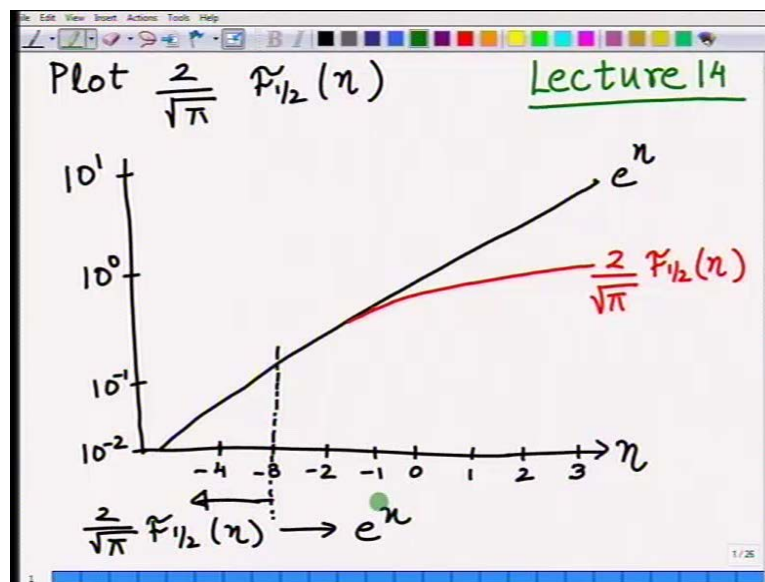 File Edit View Insert Actions Tools Help
B I
Plot 2/√π F1/2 (η)
Lecture 14
10¹
e^η
10⁰
2/√π F1/2 (η)
10⁻¹
10⁻²
-4 -3 -2 -1 0 1 2 3
η
2/√π F1/2 (η) → e^η
1/26
1